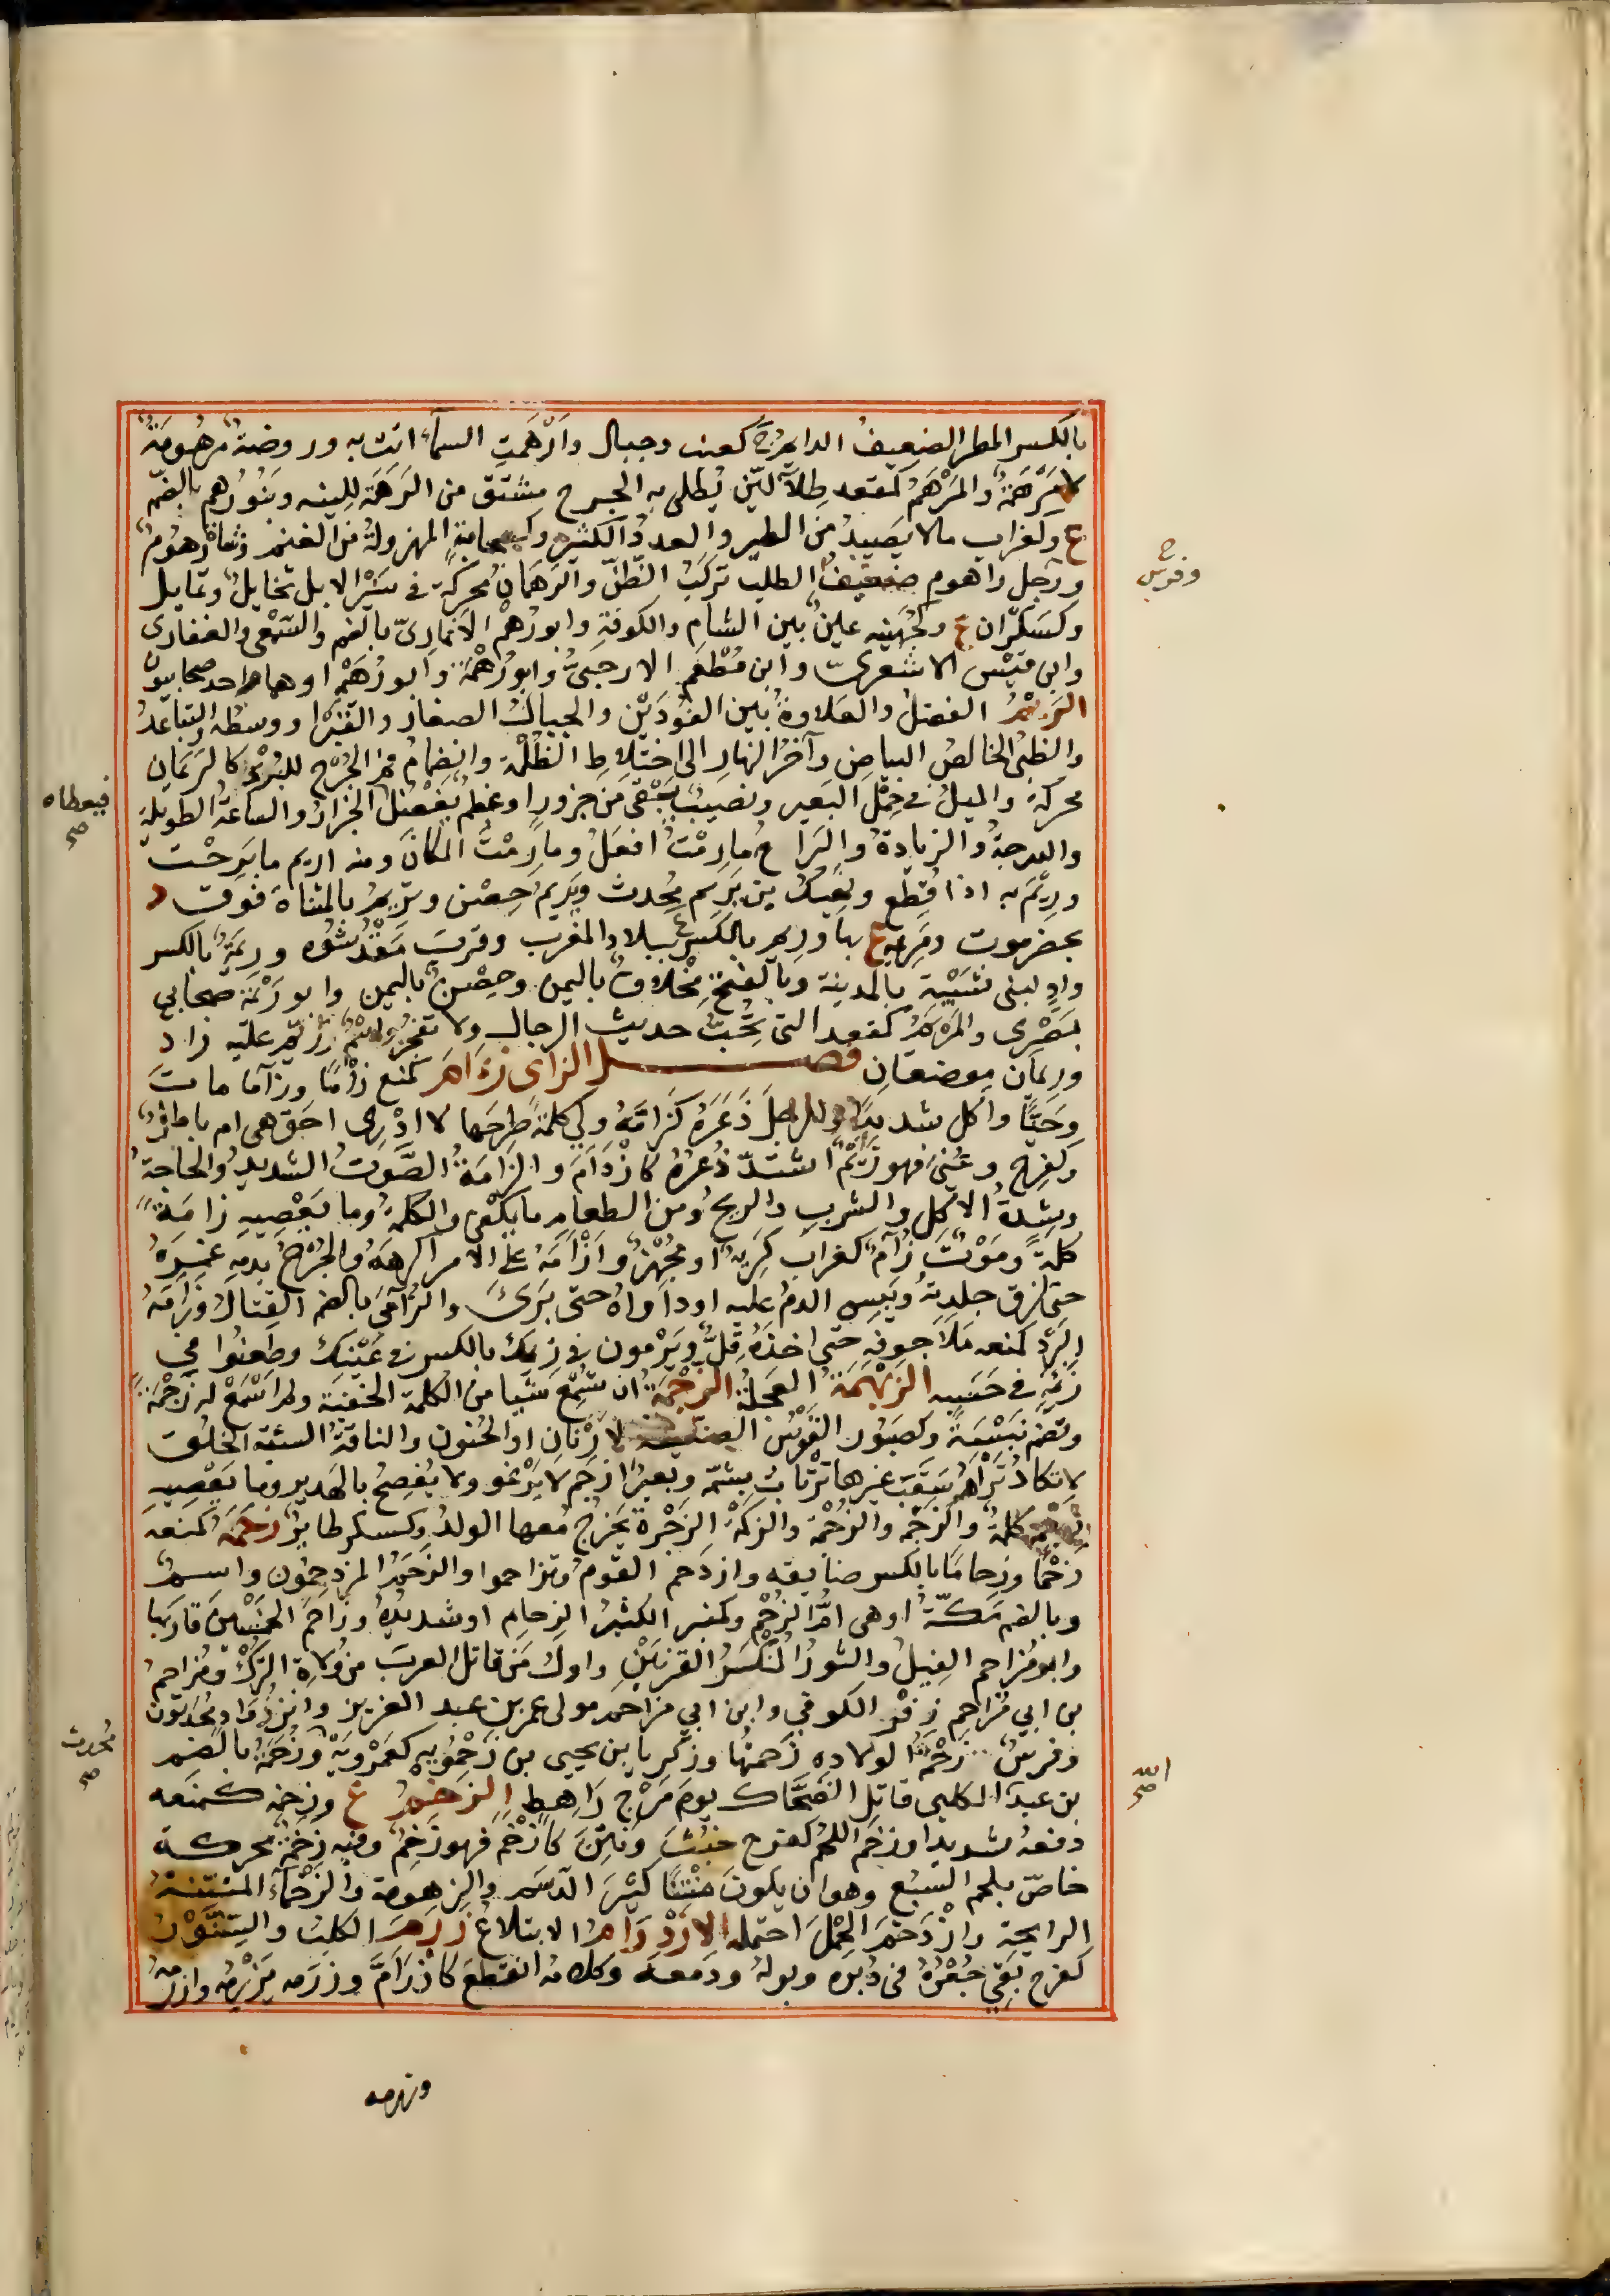 بالكسر المطر الضعيف الدايم ج كعنب وجبال وارهمت السمآء اتت به وروضة مرهومة
لا مرهمة والمرهم كمقعد طلآء لين يطلى به الجرح مشتق من الرهمة للينه وبنو رهم بالضم
ع وكغراب مالا يصيد من الطير والعدد الكثير وكسحابة المهزولة من الغنم وشاة رهوم
ورجل راهوم ضعيف الطلب تركب الظن والرهمان محركة في سير الابل تخايل وتمايل
وكسكران ع وكجهينه عين بين الشام والكوفة وابو رهم الانماري بالضم والسمعى والغفارى
وابن قيس الاشعرى وابن مطعم الارحبى وابو رهمة وابو رهم او هما واحد صحابيون
الريم الفضل والعلاوة بين الفودين والجبال الصغار والقبر او وسطه والتباعد
والظبى الخالص البياض وآخر النهار الى اختلاط الظلمة وانضمام فم الجرح للبرء كالريمان
محركة والميل في حمل البعير ونصيب يبقى من جزور او عظم يفضل الجزار والساعة الطويلة
والدرجة والزيادة والبراح ما رمت افعل وما رمت المكان ومنه اريم ما برحت
وريم به اذا قطع ونعيك بن يريم محدث ويريم حصن وتريم بالمثناة فوق د
بحضرموت ومريمة ع بها وريم بالكسر ع ببلاد المغرب وقرب مقدشوه وريمة بالكسر
واد لبنى شيبة بالمدينة وبالفتح مخلاف باليمن وحصن باليمن وابو ريمة صحابي
بصرى والمريم كمقعد التى تحب حديث الرجال ولا تفجر واسم وريم عليه زاد
وريمان موضعان فصل الزاى زام كمنع زأما وزآما مات
وحيا واكل شديدا والرجل ذعره كزامه ولى كلمة طرحها لا ادرى احق هى ام باطل
وكفرح وعنى فهو زئم اشتد ذعره كازدأم والزامة الصوت الشديد والحاجة
وشدة الاكل والشرب والريح ومن الطعام ما يكفى والكلمة وما يعصيه زامة
كلمة وموت زآم كغراب كريه او مجهز وازامه على الامر اكرهه والجرح بدمه غمزه
حتى لزق جلدته ويبس الدم عليه او داواه حتى برئ والزآمى بالضم القتال وزامه
البرد كمنعه ملا جوفه حتى اخذه قل ويرمون في زئمك بالكسر في عينك وطعنوا في
زئمه في حسبه الزهمة العجلة الزجمة ان تسمع شيا من الكلمة الخفية ولم اسمع له زجمة
وتضم نبسة وكصبور القوس لارنان او الحنون والناقة السيئة الخلق
لا تكاد ترام سقب غيرها ترتاب بشمه وبعير ازجم لا يرغو ولا يفصح بالهدير وما يعصيه
كلمة والزجمة والزحمة والزكمة الزحرة يخرج معها الولد وكسكر طاير زحمه كمنعه
زحما وزحاما بالكسر ضايقه وازدحم القوم وتزاحموا والزحم المزدحمون واسم
وبالضم مكة او هى ام الزحم وكمنبر الكثير الزحام او شديده وزاحم الخمسين قاربها
وابو مزاحم الفيل والثور المنكسر القرنين واول من قاتل العرب من ولاة الترك ومزاحم
بن ابي مزاحم زفر الكوفي وابن ابي مزاحم مولى عمر بن عبد العزيز وابن ذواد محدثون
وفرس زحمة الولادة زحمتها وزكريا بن يحيى بن زحمويه كعمرويه وزحمة بالضم
بن عبد الكلبى قاتل الضحاك يوم مرج راهط الزخم ع وزخمه كمنعه
دفعه شديدا وزخم اللحم كفرح خبث ونتن كازخم فهو زخم وفيه زخمة محركة
خاص بلحم السبع وهو ان يكون منتنا كثير الدسم والزهومة والزخمآء المنتنة
الرايحة وازدخم الحمل احتمله الازدرام الابتلاع زرم الكلب والسنور
كفرح بقى جعره في دبره وبوله ودمعه وكلامه انقطع كازرام وزرمه يزرمه وازرمه
وزرمه
ج
وفرس
فيعطاه
صح
محدث
صح
الله
صح